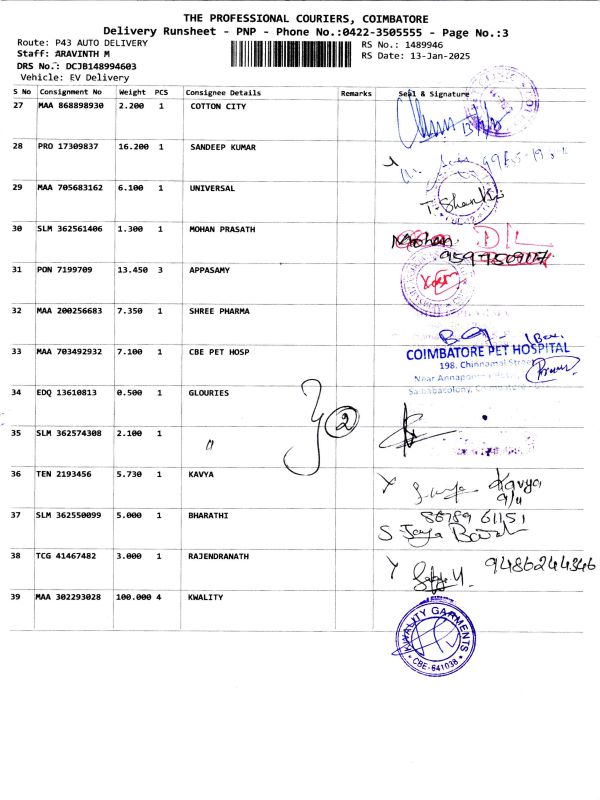 THE PROFESSIONAL COURIERS, COIMBATORE
Delivery Runsheet - PNP - Phone No.:0422-3505555 - Page No.:3
Route: P43 AUTO DELIVERY RS No.: 1489946
Staff: ARAVINTH M RS Date: 13-Jan-2025
DRS No.: DCJB148994603
Vehicle: EV Delivery
S No Consignment No Weight PCS Consignee Details Remarks Seal & Signature
27 MAA 868898930 2.200 1 COTTON CITY
28 PRO 17309837 16.200 1 SANDEEP KUMAR
29 MAA 705683162 6.100 1 UNIVERSAL
T. Shankar
30 SLM 362561406 1.300 1 MOHAN PRASATH
Mohan DIL
31 PON 7199709 13.450 3 APPASAMY
32 MAA 200256683 7.350 1 SHREE PHARMA
33 MAA 703492932 7.100 1 CBE PET HOSP
COIMBATORE PET HOSPITAL
198, Chinnamal Street
Near Annapoorna
Saibabacolony, Coimbatore
34 EDQ 13610813 0.500 1 GLOURIES
2
35 SLM 362574308 2.100 1
"
36 TEN 2193456 5.730 1 KAVYA
Kavya
9/4
37 SLM 362550099 5.000 1 BHARATHI
88789 61151
S Jaya
38 TCG 41467482 3.000 1 RAJENDRANATH
9486244346
39 MAA 302293028 100.000 4 KWALITY
KWALITY GARMENTS
CBE-641038